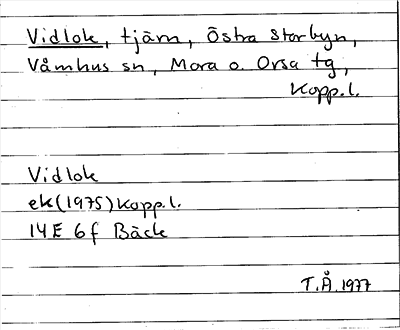 Vidlok, tjärn, Östra Storbyn,
Våmhus sn, Mora o. Orsa tg,
Kopp.l.
Vidlok
ek(1975)Kopp.l.
14E 6f Bäck
T.Å.1977